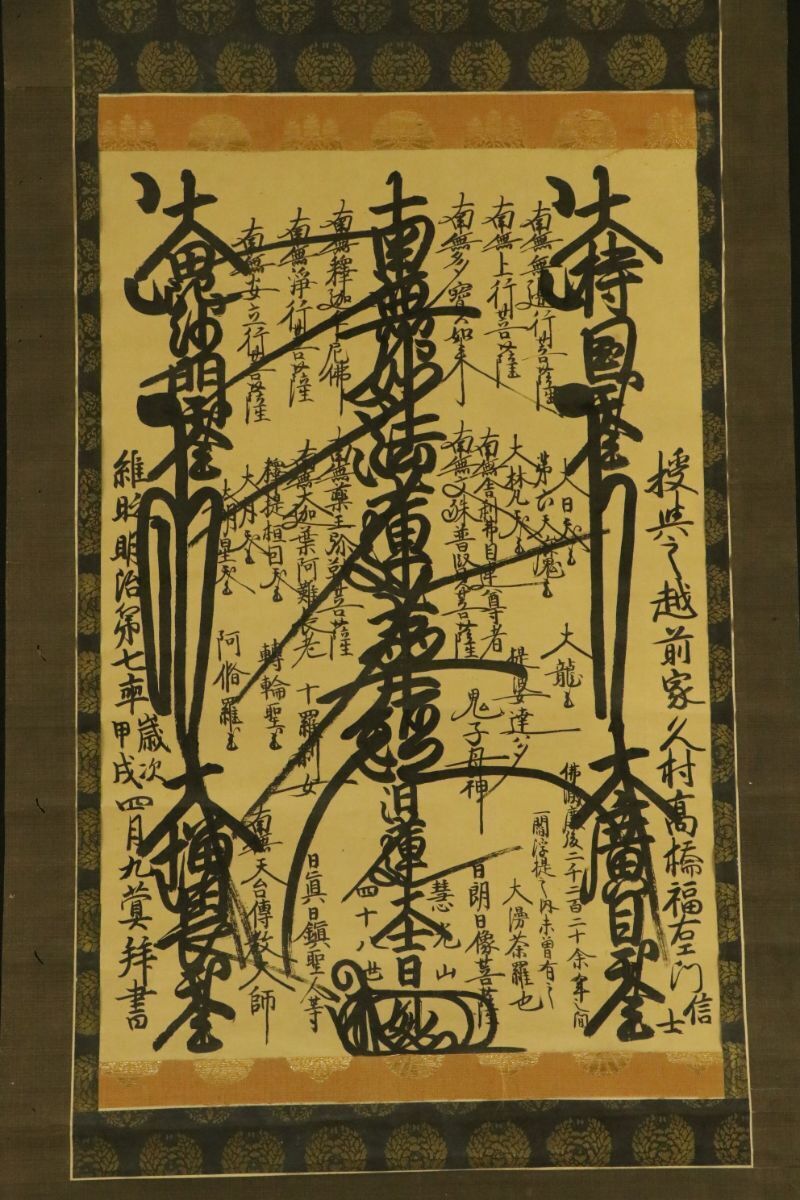 授與之越前家久村髙橋福右エ門信士
大持國天王
大廣目天王
南無無邊行菩薩
南無上行菩薩
南無多寳如来
大日天王
第六天魔王
大梵天王
南無舎利弗目連尊者
南無文殊普賢菩薩
大龍王
提婆達多
鬼子母神
佛滅度後二千二百二十余年之間
一閻浮提之内未曾有之
大漫荼羅也
日朗日像菩薩
慧光山
南無妙法蓮華経
日蓮大士
日妙
四十八世
南無釋迦牟尼佛
南無淨行菩薩
南無安立行菩薩
南無藥王弥勒菩薩
南無大迦葉阿難長老
釋提桓因天王
大月天王
大明星天王
十羅刹女
轉輪聖王
阿脩羅王
日眞日鎮聖人等
南無天台傳教大師
大毘沙門天王
大增長天王
維時明治第七年歳次甲戌四月九蓂拜書